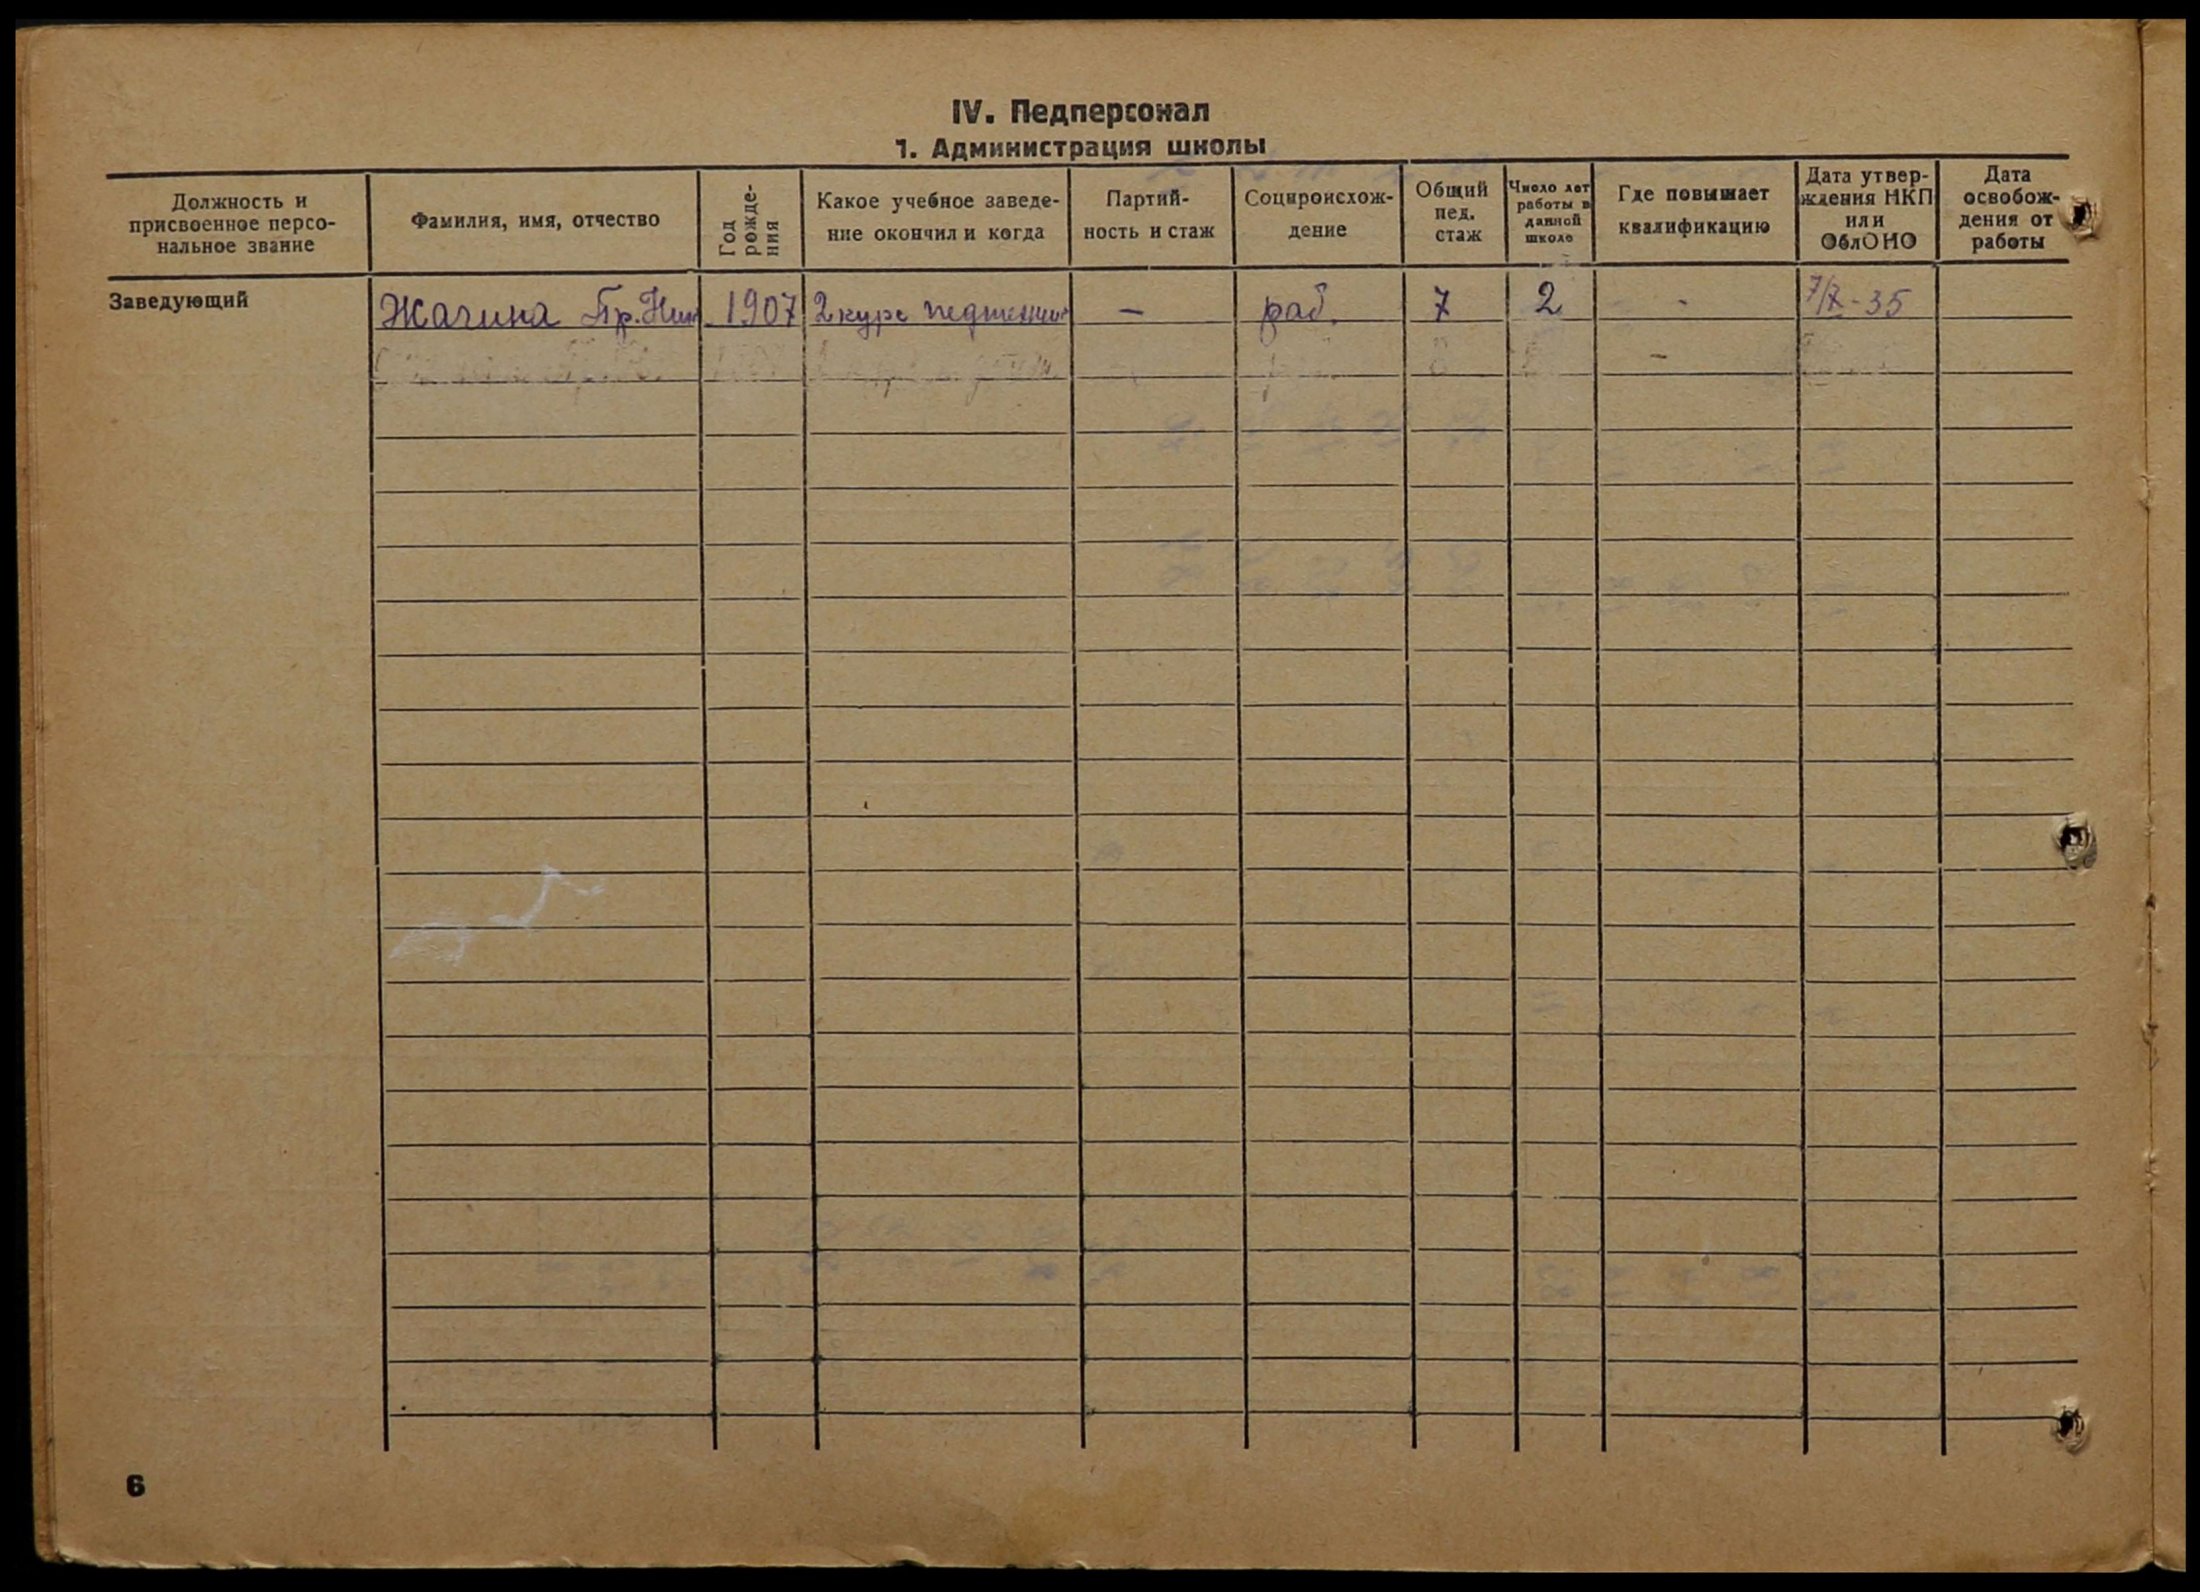 IV. Педперсонал
1. Администрация школы
Должность и
присвоенное персо-
нальное звание
Фамилия, имя, отчество
Год
рожде-
ния
Какое учебное заведе-
ние окончил и когда
Партий-
ность и стаж
Соцпроисхож-
дение
Общий
пед.
стаж
Число лет
работы в
данной
школе
Где повышает
квалификацию
Дата утвер-
ждения НКП
или
ОблОНО
Дата
освобож-
дения от
работы
Заведующий
Жагина Пр. Ник 1907 2 курс педтехник — раб. 7 2 - 7/X-35
6